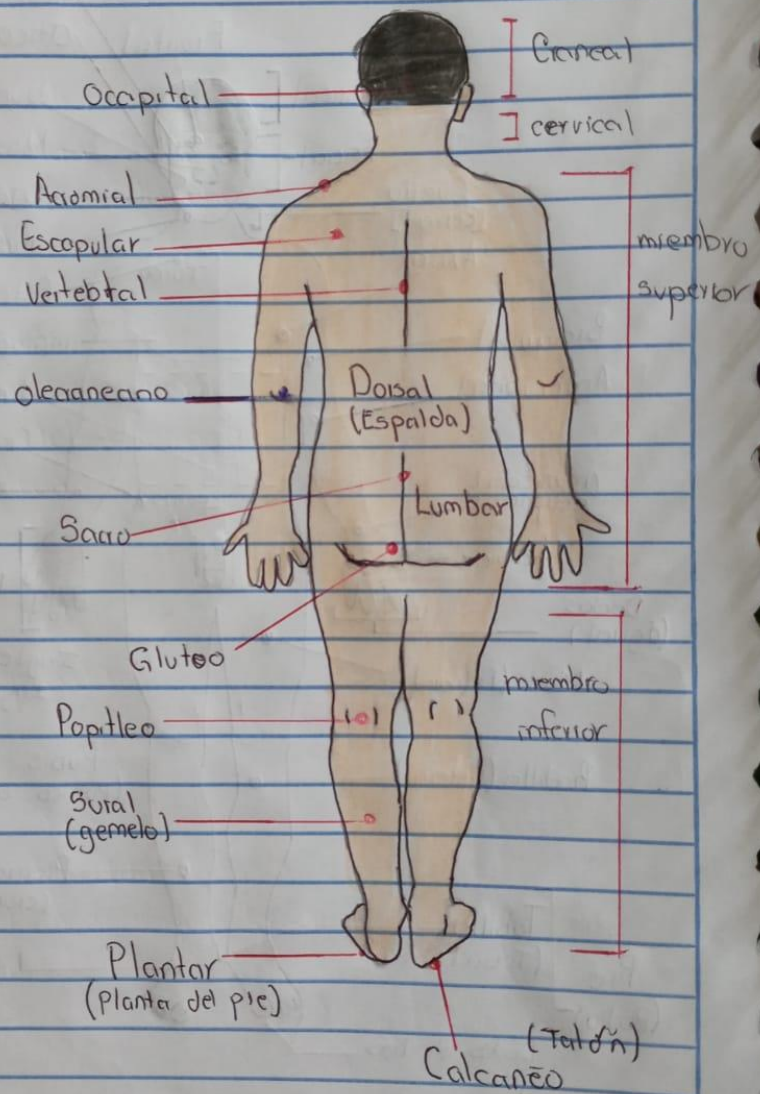 Craneal
Ocapital
cervical
Acromial
Escapular
miembro
superior
Vertebtal
olecraneano
Dorsal
(Espalda)
Lumbar
Sacro
Gluteo
miembro
inferior
Popitleo
Sural
(gemelo)
Plantar
(planta del pie)
(Talón)
Calcanēo